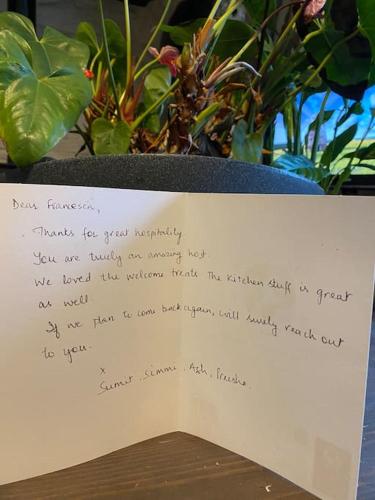 Dear Francesca,
Thanks for great hospitality.
You are truly an amazing host.
We loved the welcome treats The kitchen stuff is great
as well.
If we plan to come back again, will surely reach out
to you.
x
Sumit, Simmi, Ash,